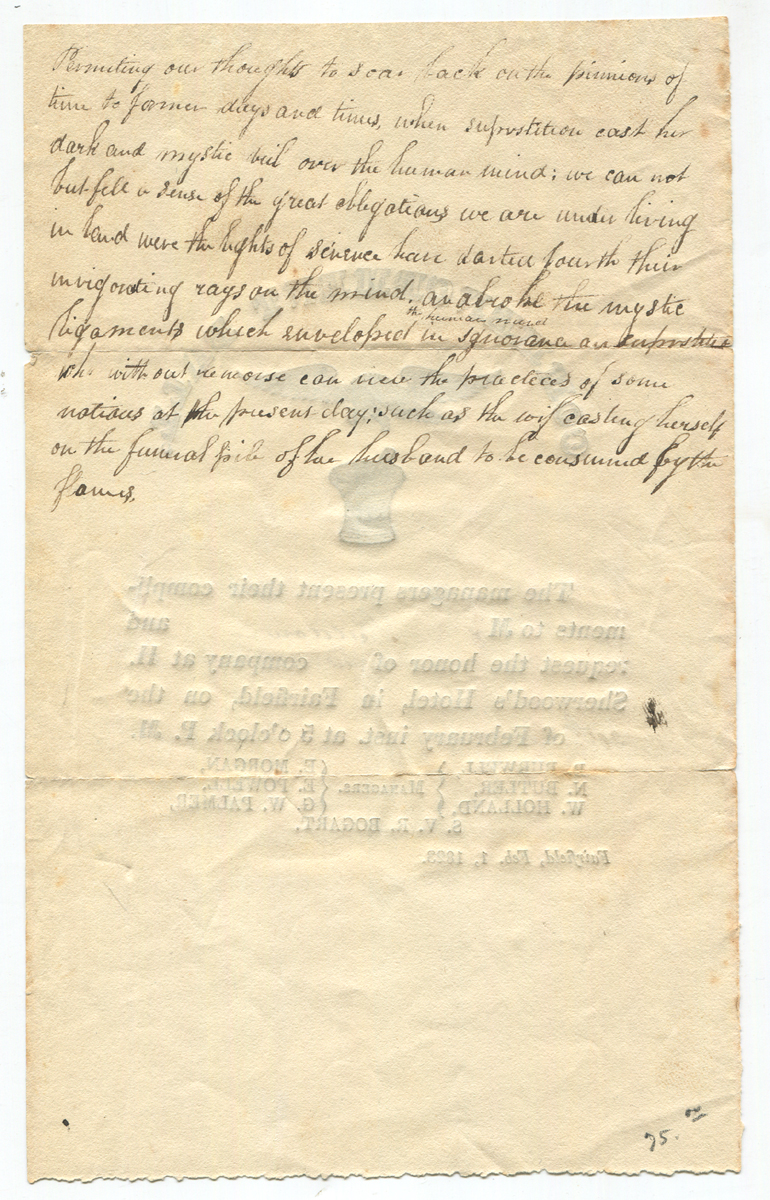 Permiting our thoughts to soar back on the pinnions of
time to former days and times, when suprstition cast her
dark and mystic veil over the human mind; we can not
but fell a sense of the great obligations we are under living
in land were the lights of science have darted fourth their
invigorating rays on the mind. and broke the mystic
the human mind
ligaments which enveloped in ignorance an suprstition
Who without remorse can view the practices of some
nations at the present day; such as the wif casting herself
on the funeral pile of her husband to be consumed by the
flames.
The managers present their compli-
ments to M and
request the honor of company at H.
Sherwood's Hotel, in Fairfield, on the
of February inst. at 5 o'clock P. M.
P. BURWELL, F. MORGAN,
N. BUTLER, MANAGERS. E. POWELL,
W. HOLLAND, G. W. PALMER,
S. V. R. BOGART,
Fairfield, Feb. 1, 1823.
75.